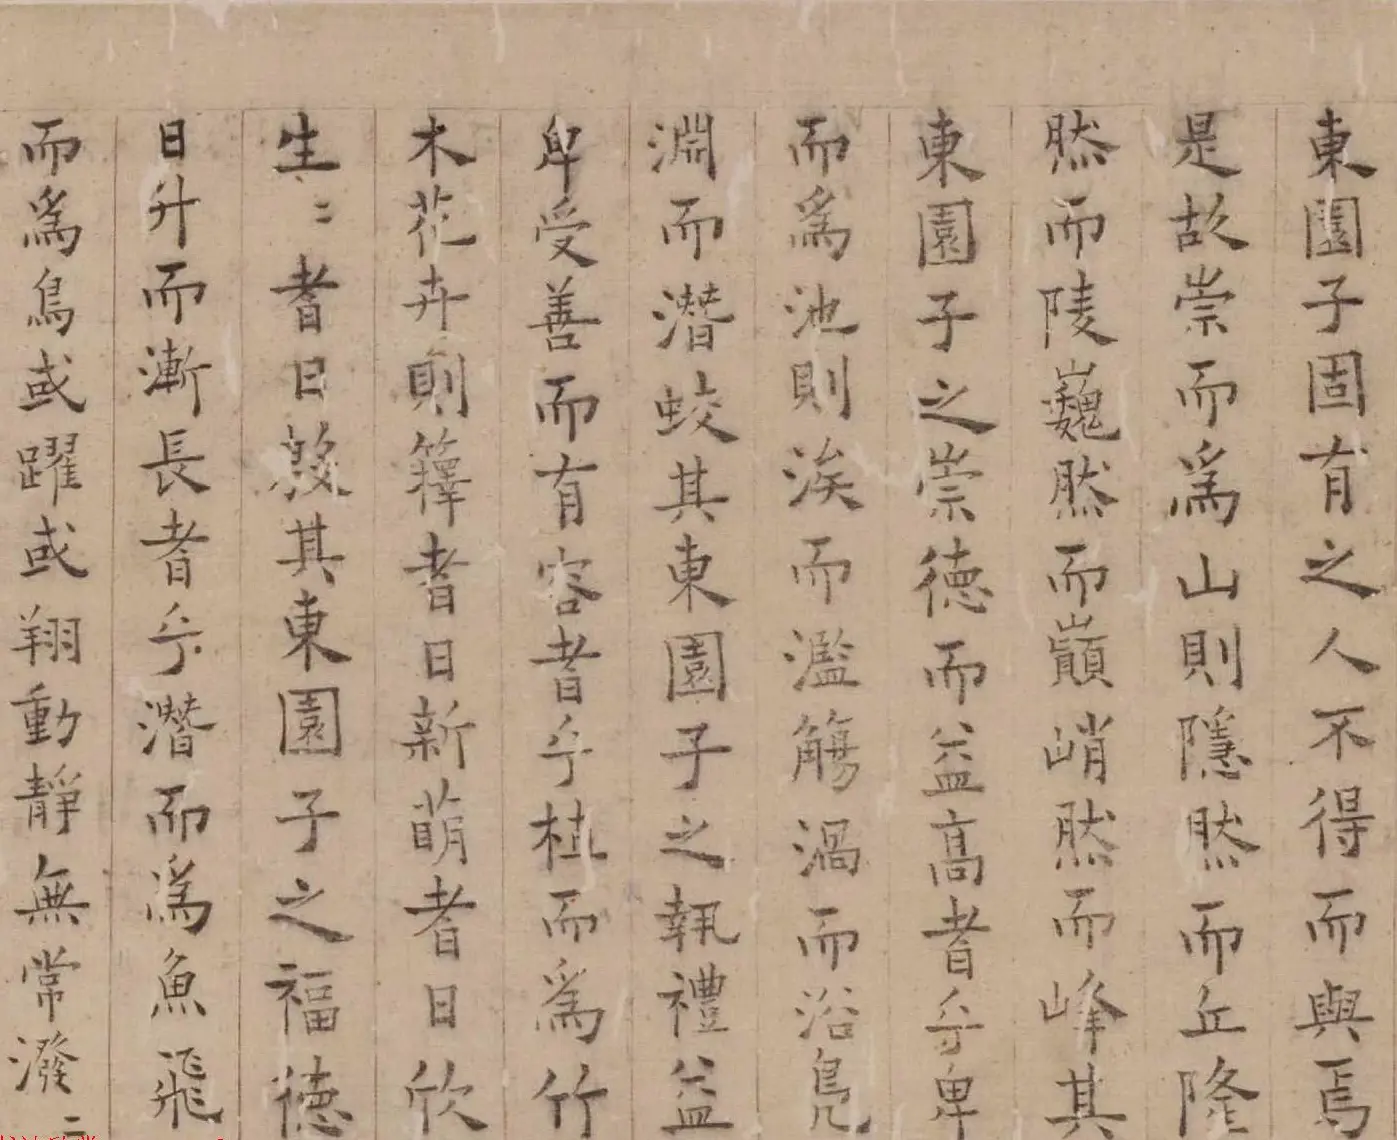 東園子固有之人不得而與焉
是故崇而爲山則隱然而丘隆
然而陵巍然而巔峭然而峰其
東園子之崇德而益高者乎卑
而爲池則涘而濫觴渦而浴鳧
淵而潛蛟其東園子之執禮益
卑受善而有容者乎植而爲竹
木花卉則籜者日新萌者日欣
生〻者日殺其東園子之福德
日升而漸長者乎潛而爲魚飛
而爲鳥或躍或翔動靜無常潑〻